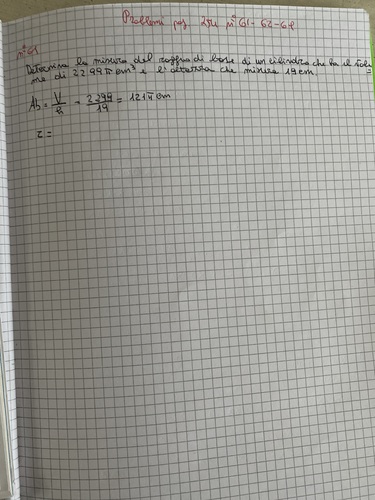 Problemi pag 254 n° 61-62-64
n°61
Determina la misura del raggio di base di un cilindro che ha il volu=
me di 2299π cm³ e l'altezza che misura 19 cm.
Ab = V/h = 2299/19 = 121π cm
r =